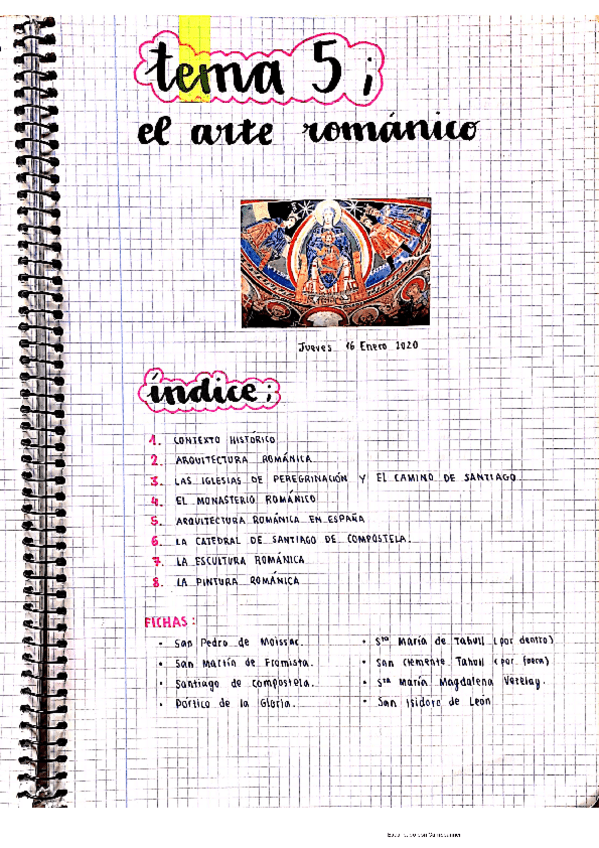 tema 5;
el arte románico
Jueves 16 Enero 2020
índice;
1. CONTEXTO HISTÓRICO
2. ARQUITECTURA ROMÁNICA
3. LAS IGLESIAS DE PEREGRINACIÓN Y EL CAMINO DE SANTIAGO
4. EL MONASTERIO ROMÁNICO
5. ARQUITECTURA ROMÁNICA EN ESPAÑA
6. LA CATEDRAL DE SANTIAGO DE COMPOSTELA.
7. LA ESCULTURA ROMÁNICA
8. LA PINTURA ROMÁNICA
FICHAS:
• San Pedro de Moissac.
• San Martín de Fromista.
• Santiago de compostela.
• Pórtico de la Gloria.
• Sta María de Tahull (por dentro)
• San Clemente Tahull (por fuera)
• Sta María Magdalena Vezelay.
• San Isidoro de León